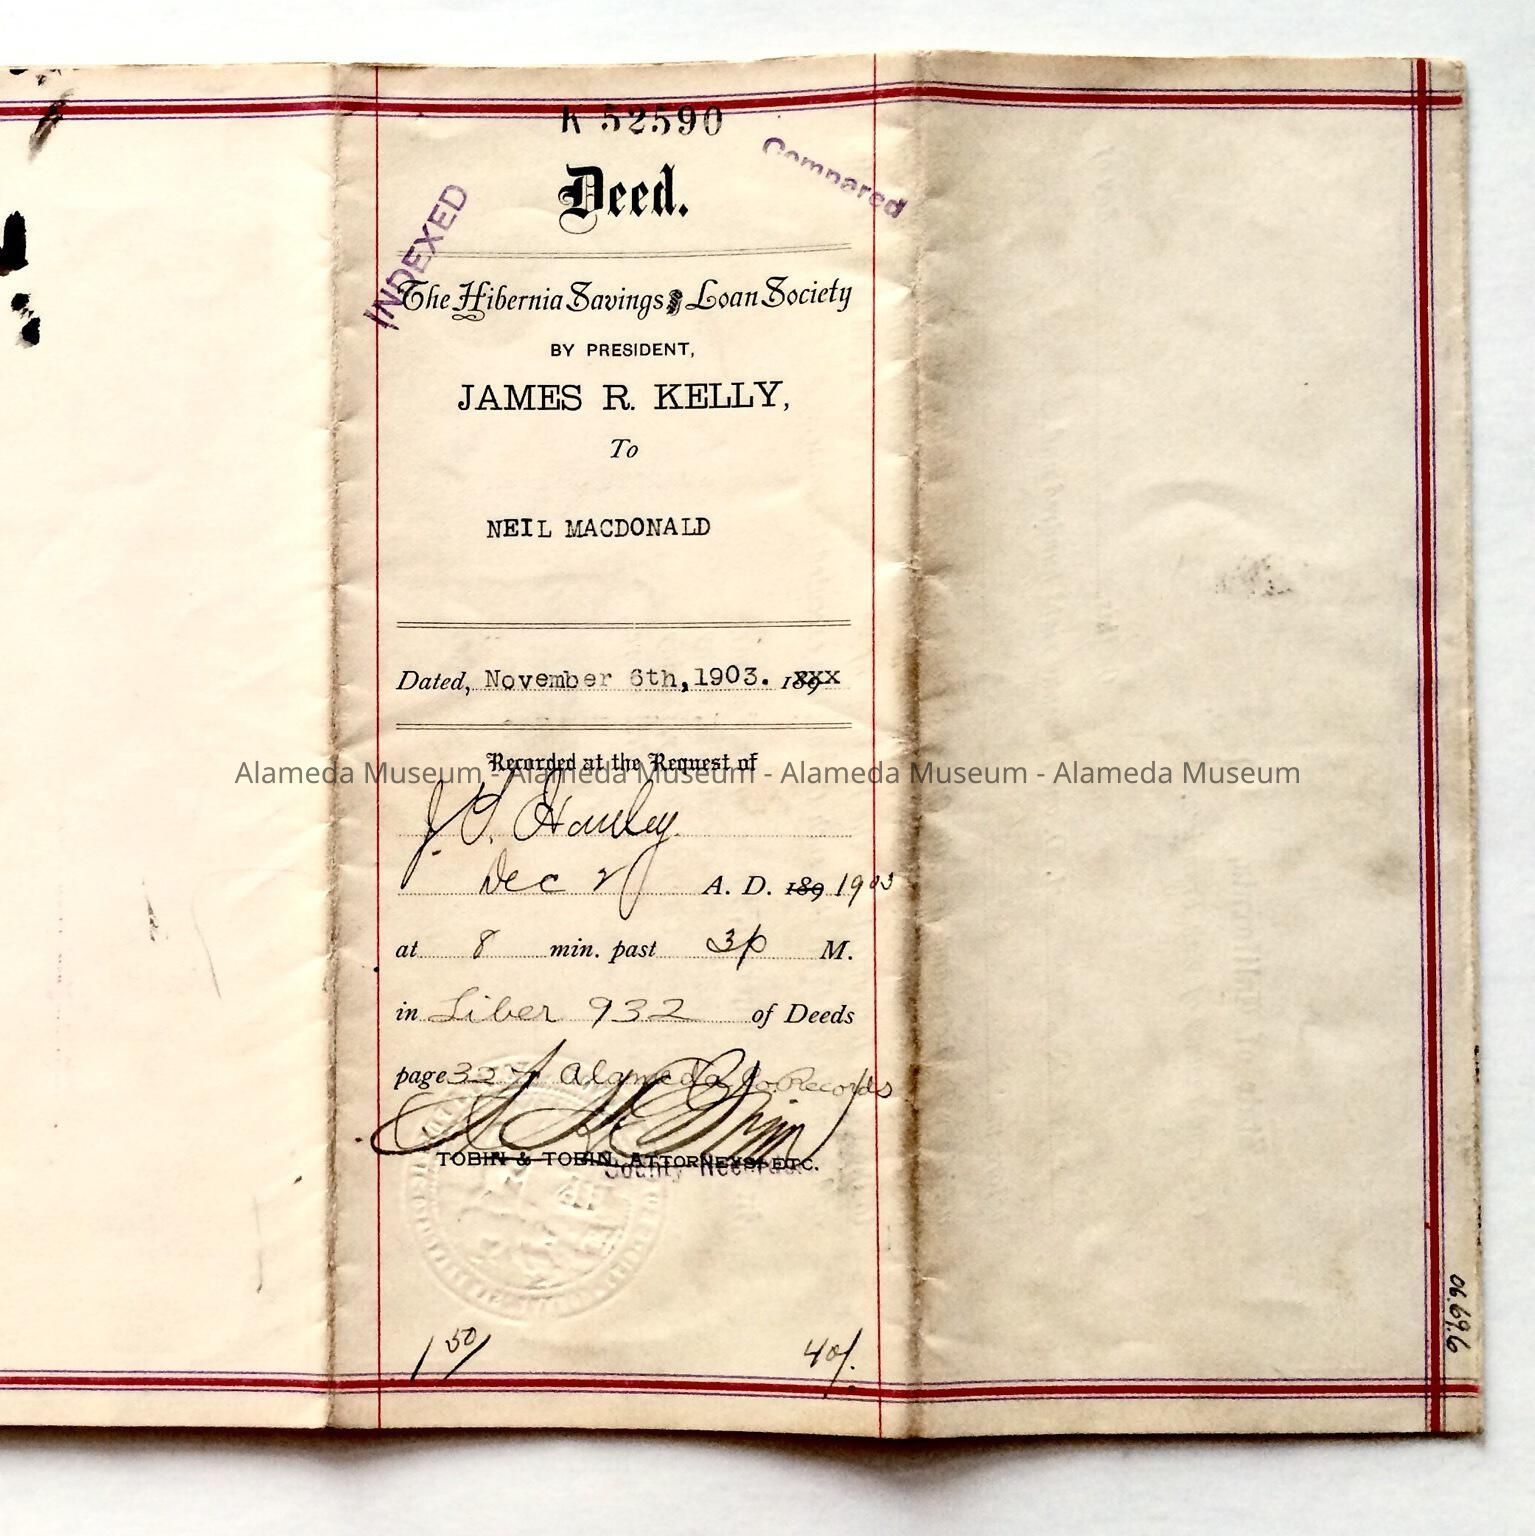 K 52590
Compared
Deed.
INDEXED
The Hibernia Savings & Loan Society
BY PRESIDENT,
JAMES R. KELLY,
To
NEIL MACDONALD
Dated, November 6th, 1903. 189xxx
Recorded at the Request of
Alameda Museum - Alameda Museum - Alameda Museum - Alameda Museum
Dec 2 A. D. 189 1903
at 8 min. past 3 p M.
in Liber 932 of Deeds
page 327 Alameda Co. Records
TOBIN & TOBIN, ATTORNEYS, ETC.
County Recorder
1 50/ 40/.
06.69.6